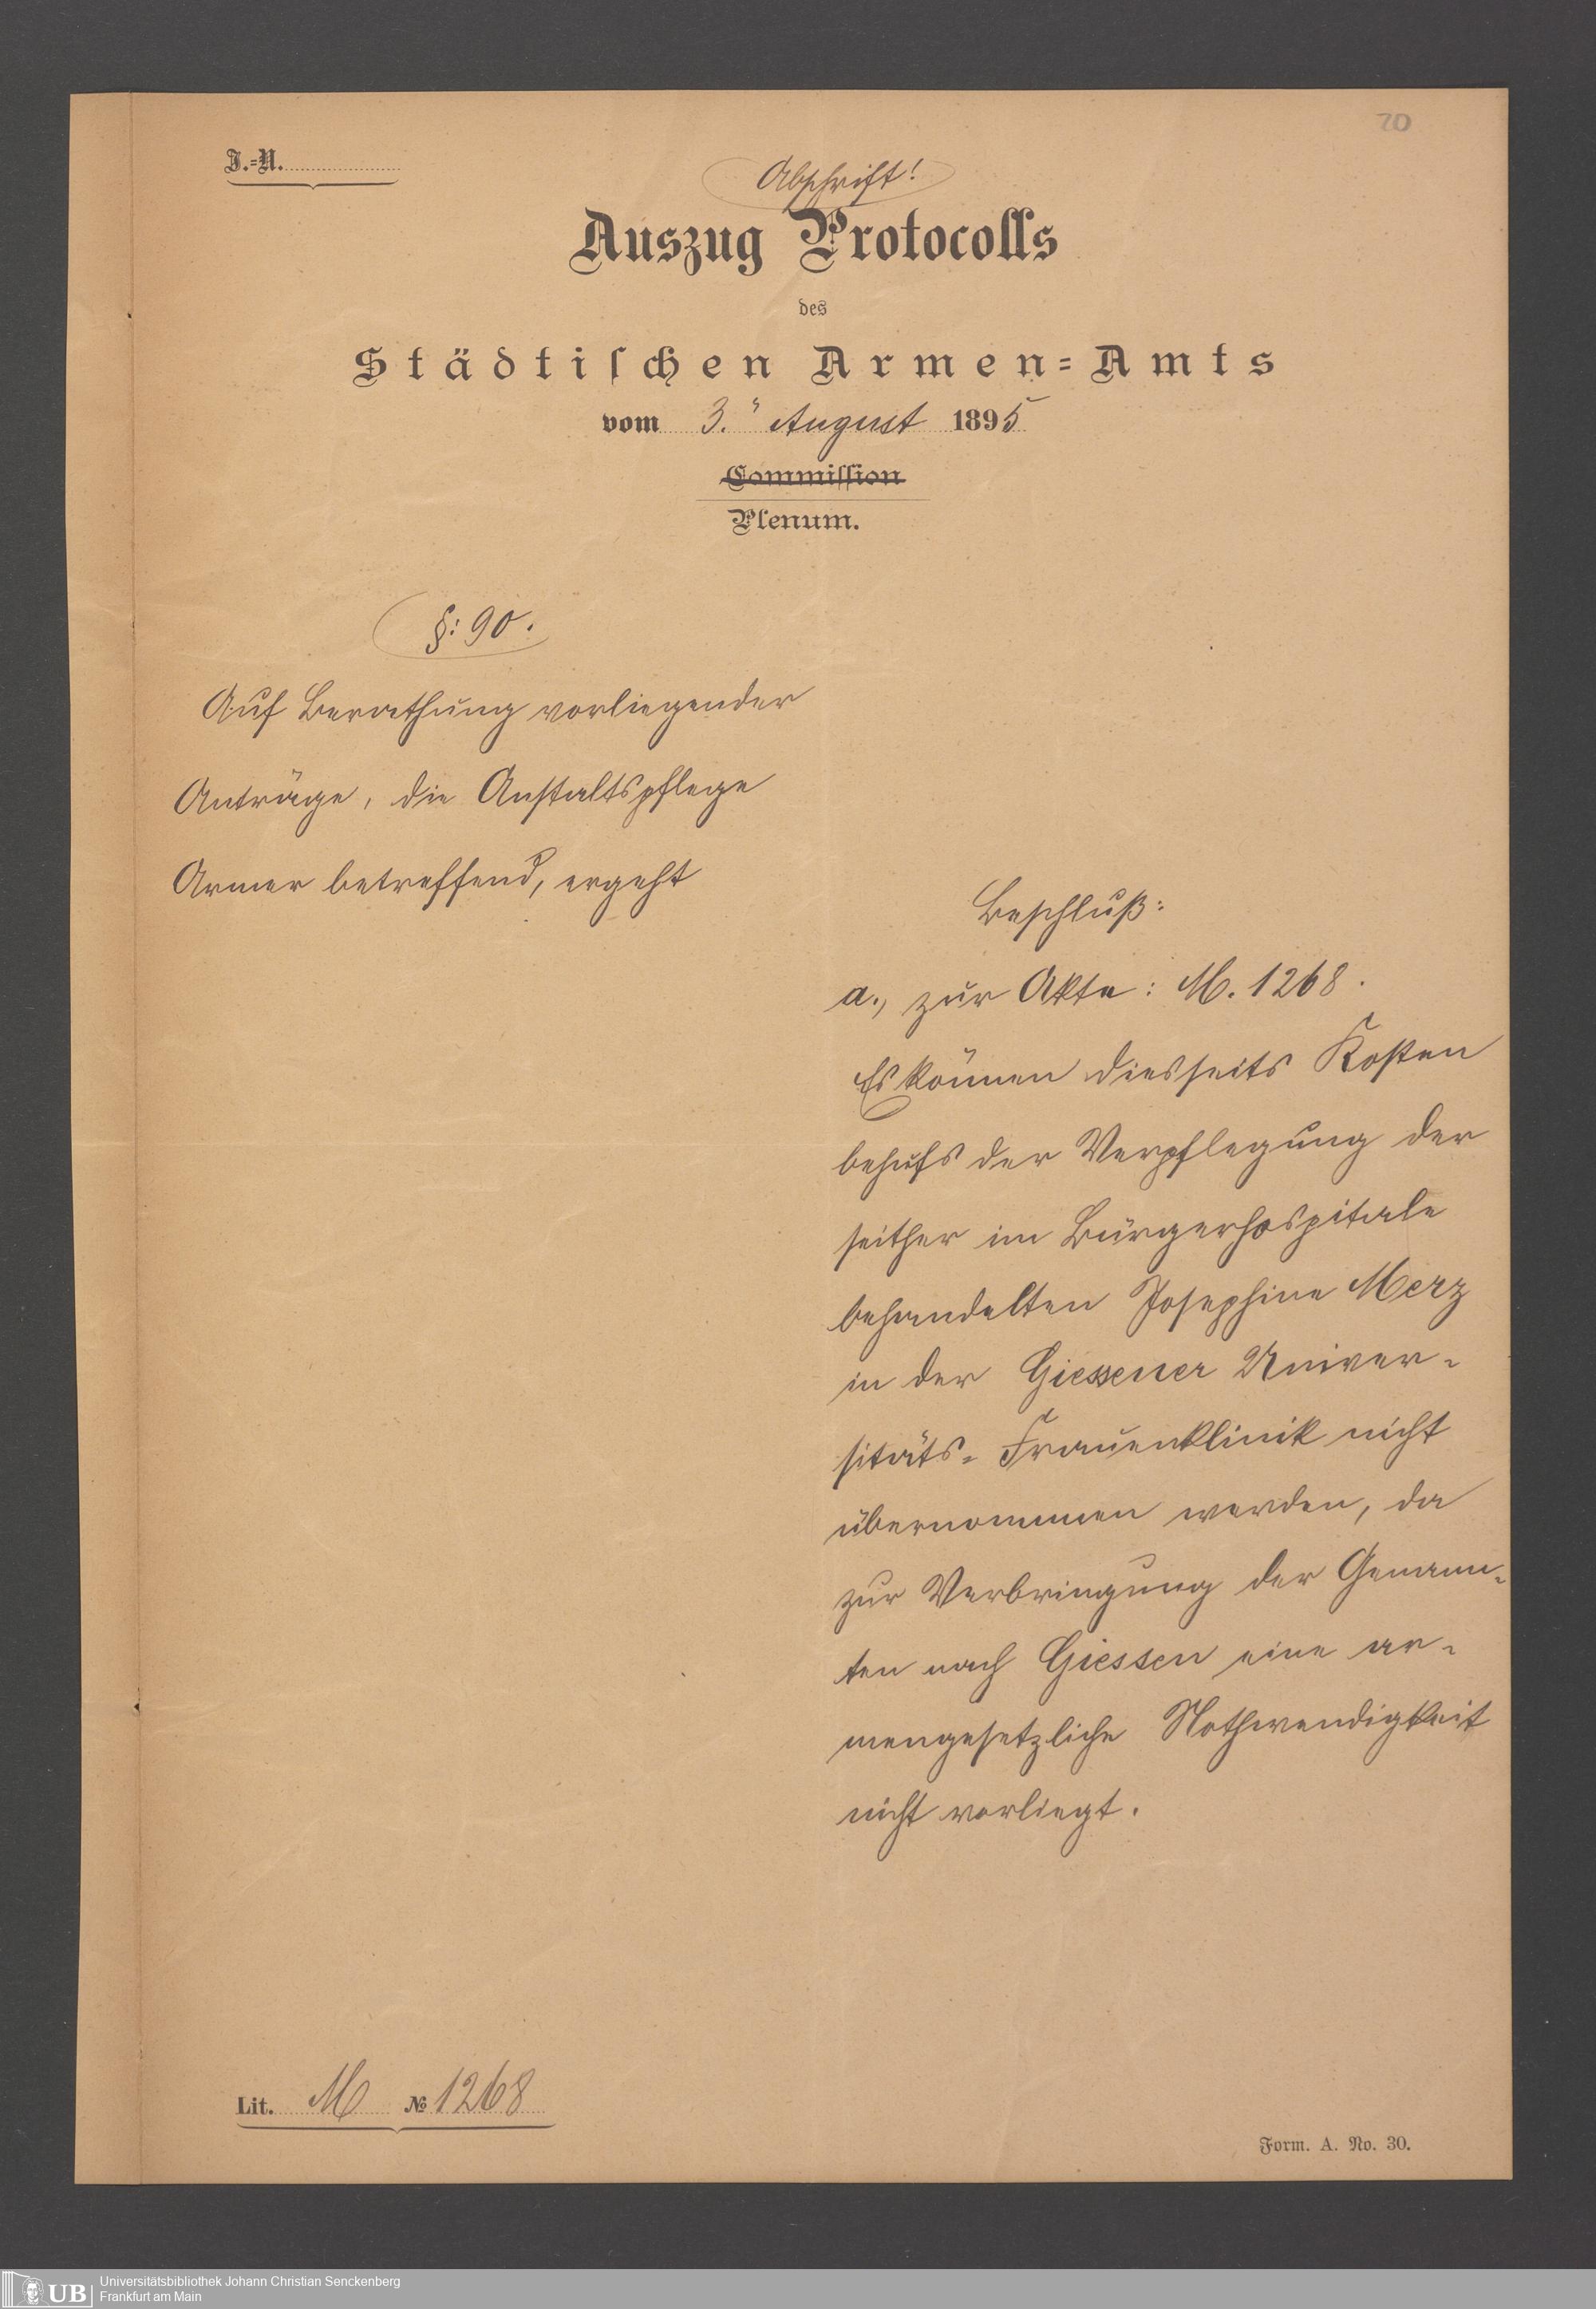 20
J.-N.
Abschrift!
Auszug Protocolls
des
Städtischen Armen-Amts
vom 3. August 1895
Commission
Plenum.
§: 90.
Auf Berathung vorliegender
Anträge, die Anstaltspflege
Armer betreffend, ergeht
Beschluß:
a., zur Akte: M. 1268.
Es können diesseits Kosten
behufs der Verpflegung der
seither im Bürgerhospitale
behandelten Josephine Merz
in der Giessener Univer-
sitäts-Frauenklinik nicht
übernommen werden, da
zur Verbringung der Genann-
ten nach Giessen eine ar-
mengesetzliche Nothwendigkeit
nicht vorliegt.
Lit. M № 1268
Form. A. No. 30.
UB
Universitätsbibliothek Johann Christian Senckenberg
Frankfurt am Main